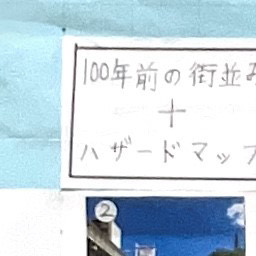 100年前の街並み
+
ハザードマップ
②